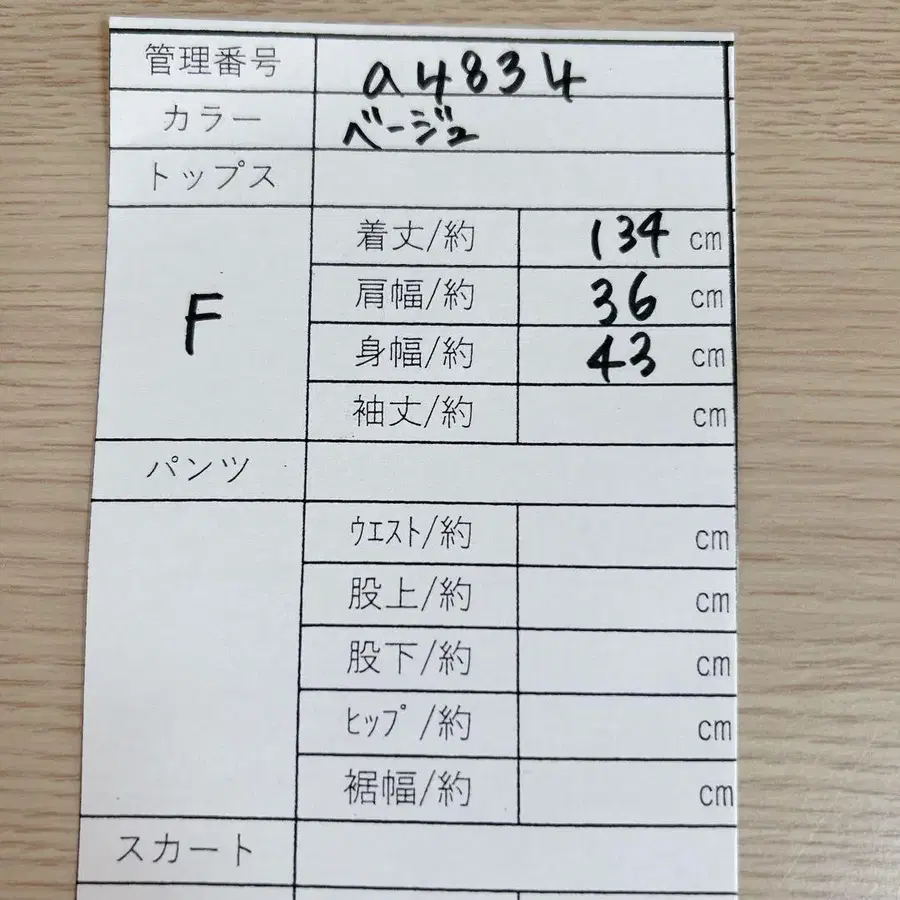 管理番号 a4834
カラー ベージュ
トップス
F
着丈/約 134 cm
肩幅/約 36 cm
身幅/約 43 cm
袖丈/約 cm
パンツ
ウエスト/約 cm
股上/約 cm
股下/約 cm
ヒップ/約 cm
裾幅/約 cm
スカート